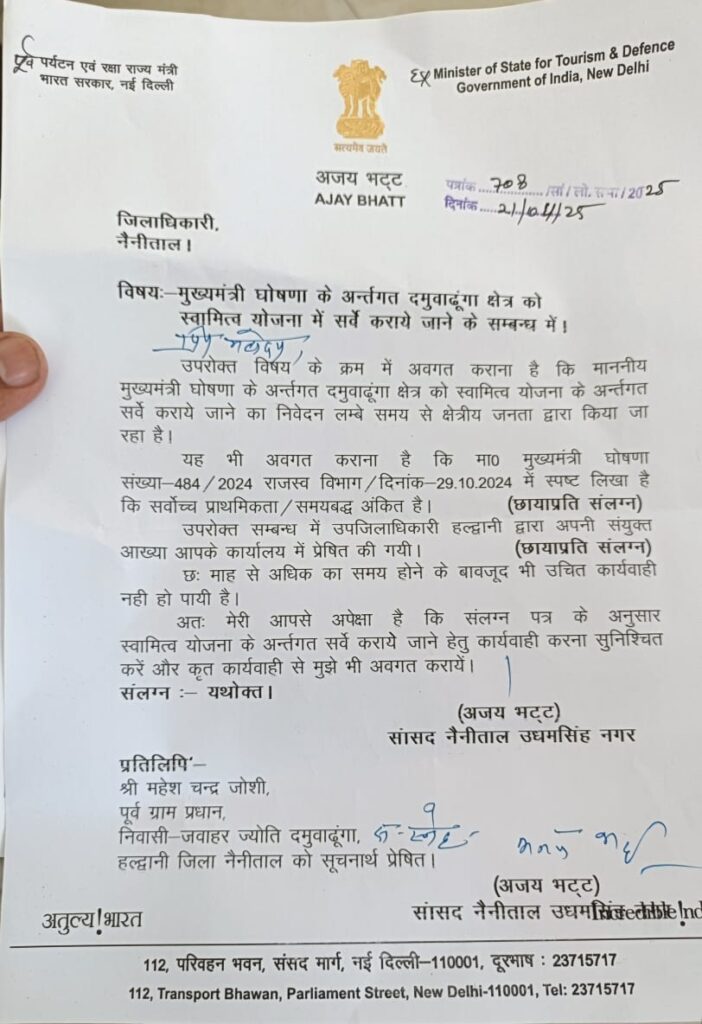 पूर्व पर्यटन एवं रक्षा राज्य मंत्री
भारत सरकार, नई दिल्ली
Ex Minister of State for Tourism & Defence
Government of India, New Delhi
सत्यमेव जयते
अजय भट्ट
AJAY BHATT
पत्रांक....708......./सां/लो.स०/2025
दिनांक.....21/04/25
जिलाधिकारी,
नैनीताल।
विषयः–मुख्यमंत्री घोषणा के अर्न्तगत दमुवाढूंगा क्षेत्र को
स्वामित्व योजना में सर्वे कराये जाने के सम्बन्ध में!
प्रिय महोदय,
उपरोक्त विषय के क्रम में अवगत कराना है कि माननीय
मुख्यमंत्री घोषणा के अर्न्तगत दमुवाढूंगा क्षेत्र को स्वामित्व योजना के अर्न्तगत
सर्वे कराये जाने का निवेदन लम्बे समय से क्षेत्रीय जनता द्वारा किया जा
रहा है।
यह भी अवगत कराना है कि मा0 मुख्यमंत्री घोषणा
संख्या–484/2024 राजस्व विभाग/दिनांक–29.10.2024 में स्पष्ट लिखा है
कि सर्वोच्च प्राथमिकता/समयबद्ध अंकित है। (छायाप्रति संलग्न)
उपरोक्त सम्बन्ध में उपजिलाधिकारी हल्द्वानी द्वारा अपनी संयुक्त
आख्या आपके कार्यालय में प्रेषित की गयी। (छायाप्रति संलग्न)
छः माह से अधिक का समय होने के बावजूद भी उचित कार्यवाही
नही हो पायी है।
अतः मेरी आपसे अपेक्षा है कि संलग्न पत्र के अनुसार
स्वामित्व योजना के अर्न्तगत सर्वे कराये जाने हेतु कार्यवाही करना सुनिश्चित
करें और कृत कार्यवाही से मुझे भी अवगत करायें।
संलग्न :– यथोक्त।
(अजय भट्ट)
सांसद नैनीताल उधमसिंह नगर
प्रतिलिपि–
श्री महेश चन्द्र जोशी,
पूर्व ग्राम प्रधान,
निवासी–जवाहर ज्योति दमुवाढूंगा,
हल्द्वानी जिला नैनीताल को सूचनार्थ प्रेषित।
अजय भट्ट
(अजय भट्ट)
सांसद नैनीताल उधमसिंह नगर
अतुल्य!भारत
Incredible!Ind
112, परिवहन भवन, संसद मार्ग, नई दिल्ली–110001, दूरभाष : 23715717
112, Transport Bhawan, Parliament Street, New Delhi-110001, Tel: 23715717